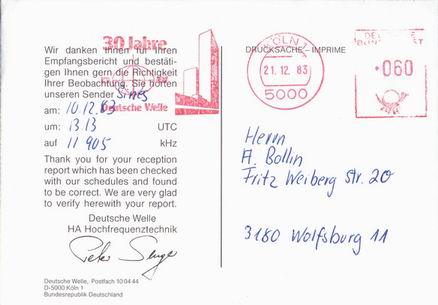 30 Jahre
Deutsche Welle
Wir danken Ihnen für Ihren
Empfangsbericht und bestäti-
gen Ihnen gern die Richtigkeit
Ihrer Beobachtung. Sie hörten
unseren Sender Sines
am: 10.12.83
um: 13.13 UTC
auf 11 905 kHz
Thank you for your reception
report which has been checked
with our schedules and found
to be correct. We are very glad
to verify herewith your report.
Deutsche Welle
HA Hochfrequenztechnik
Deutsche Welle, Postfach 10 04 44
D-5000 Köln 1
Bundesrepublik Deutschland
DRUCKSACHE – IMPRIME
KÖLN 1
21.12.83
5000
DEUTSCHE
BUNDESPOST
060
Herrn
A. Bollin
Fritz Weiberg Str. 20
3180 Wolfsburg 11